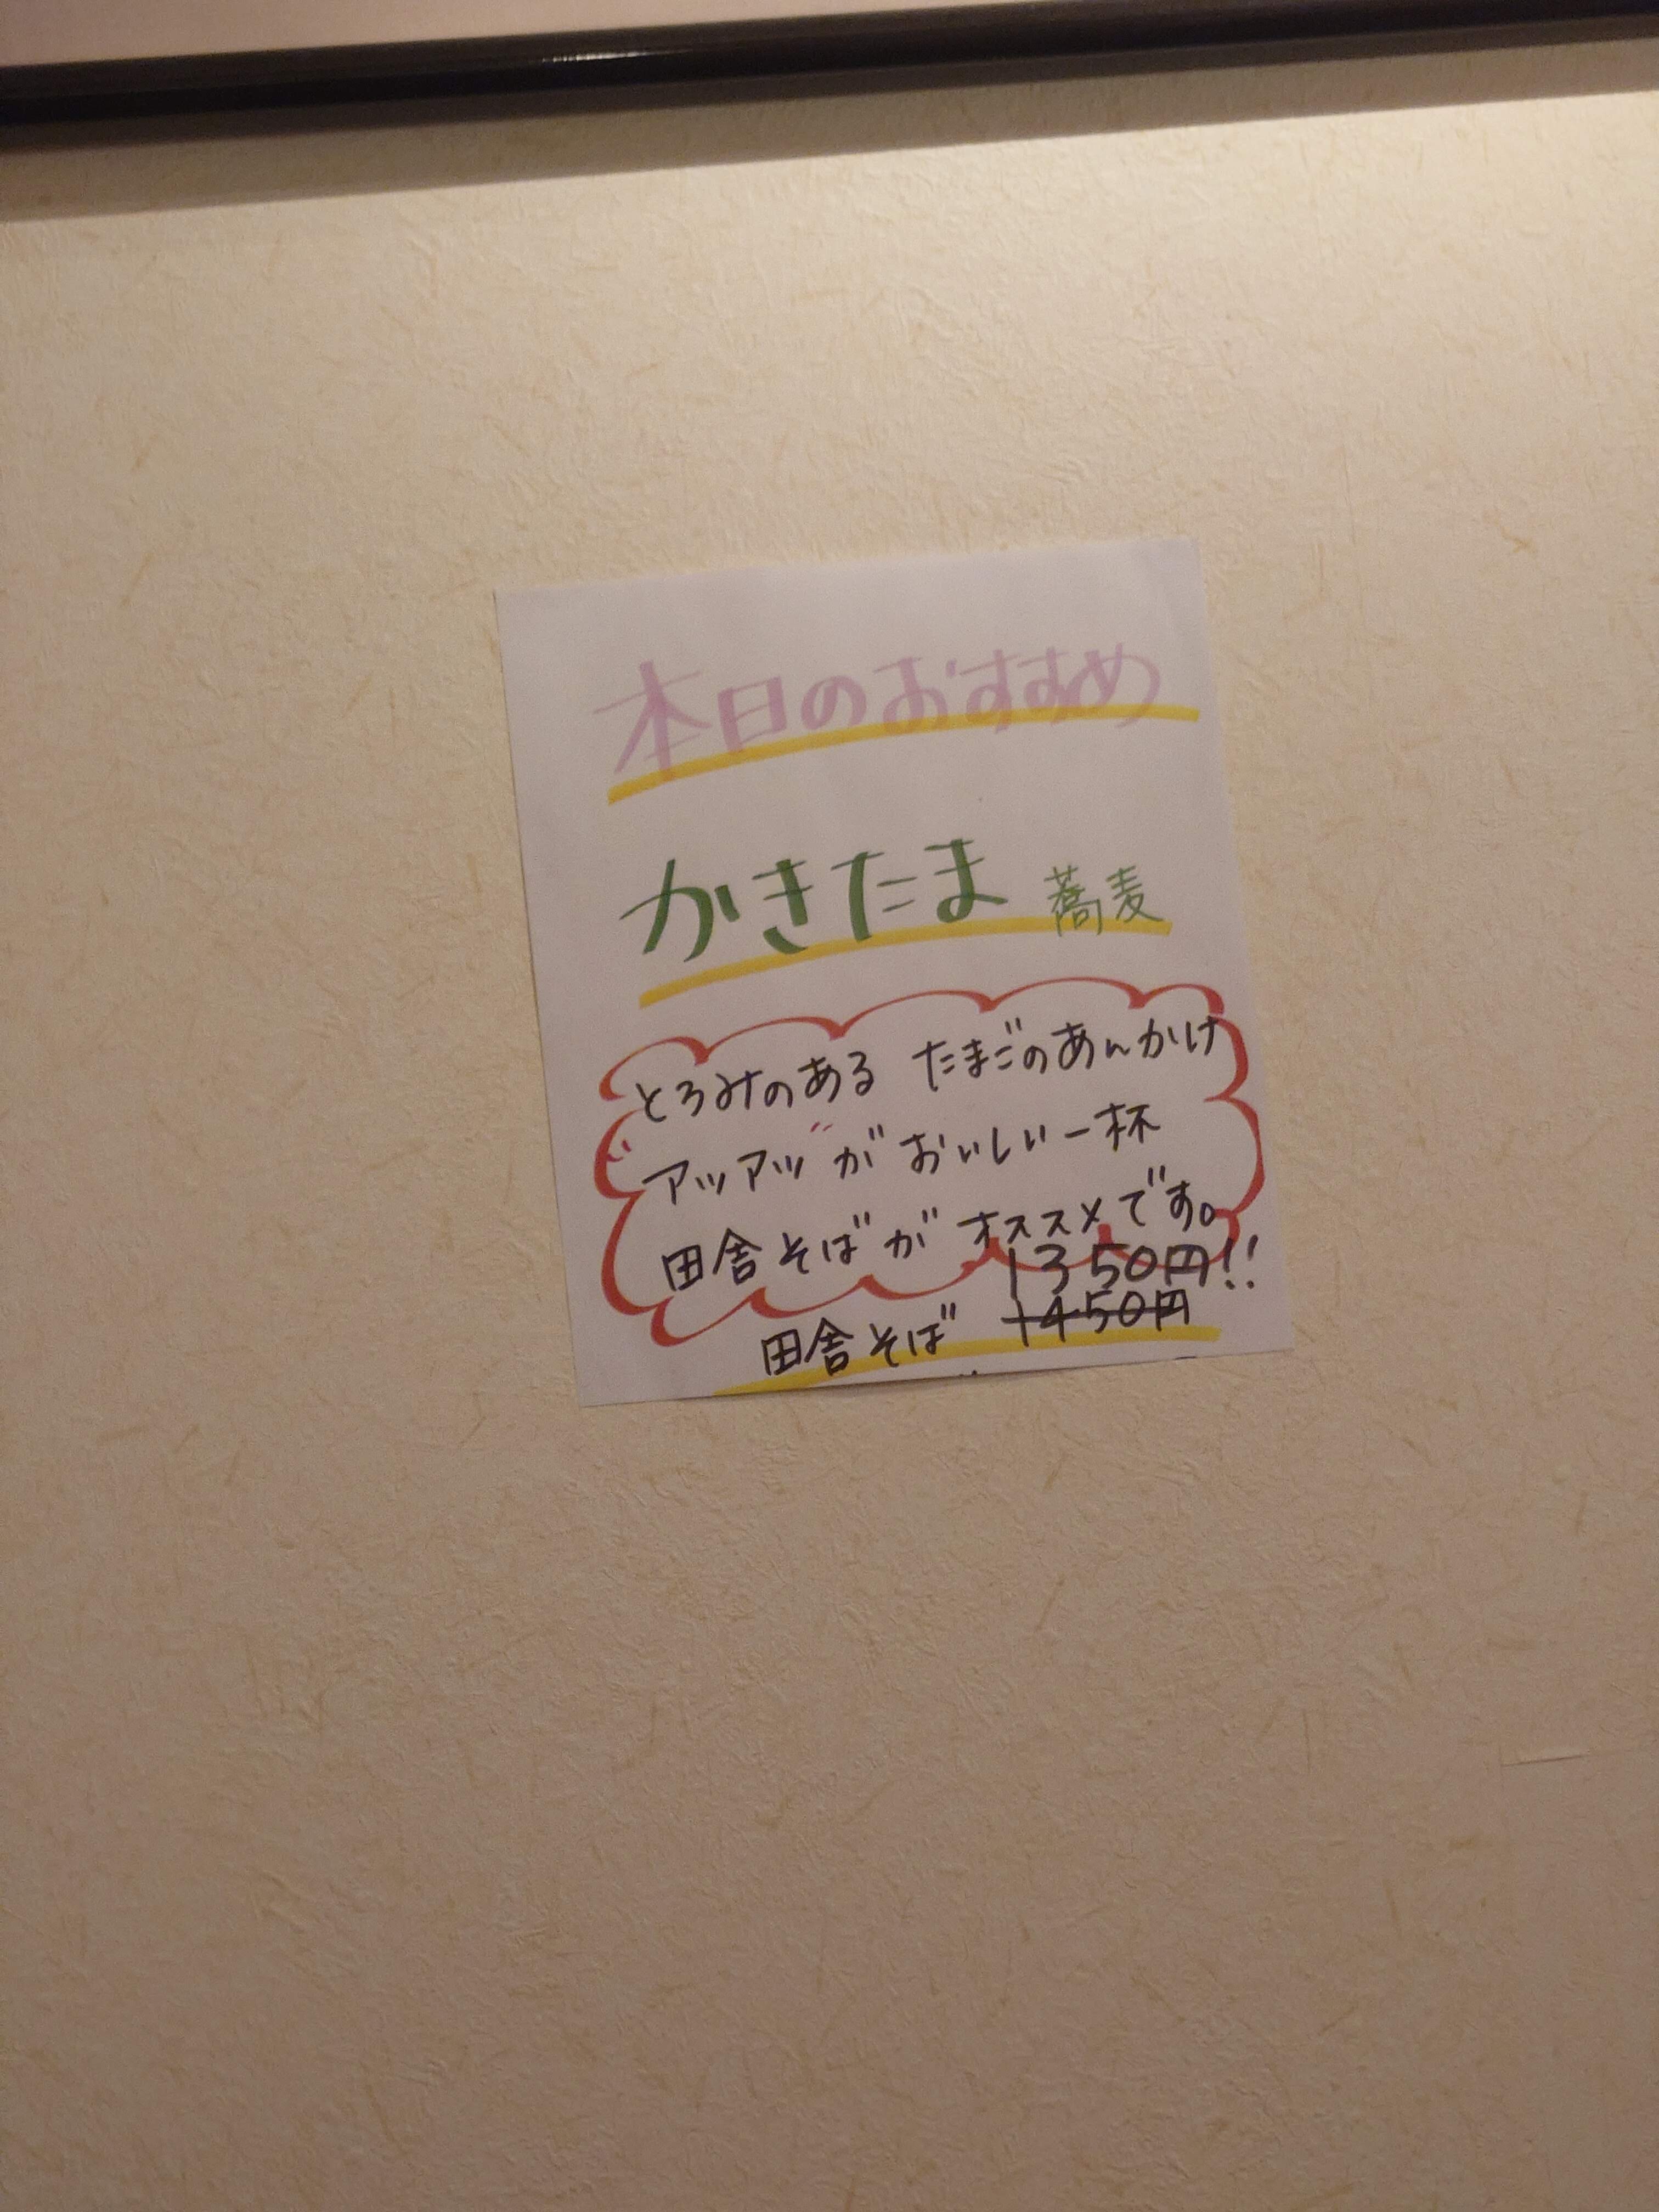 本日のおすすめ
かきたま 蕎麦
とろみのある たまごのあんかけ
"アツアツ"がおいしい一杯
田舎そばがオススメです。
1350円!!
田舎そば 1450円